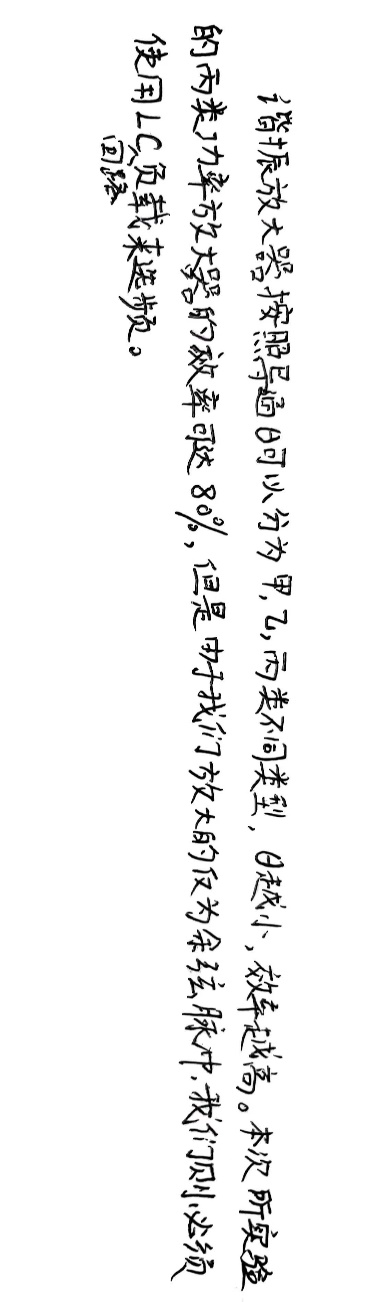 谐振放大器按照导通θ可以分为甲,乙,丙类不同类型,θ越小,效率越高。本次所实验
的丙类功率放大器的效率可达80%,但是由于我们放大的仅为余弦脉冲,我们则必须
使用LC回路负载来选频。